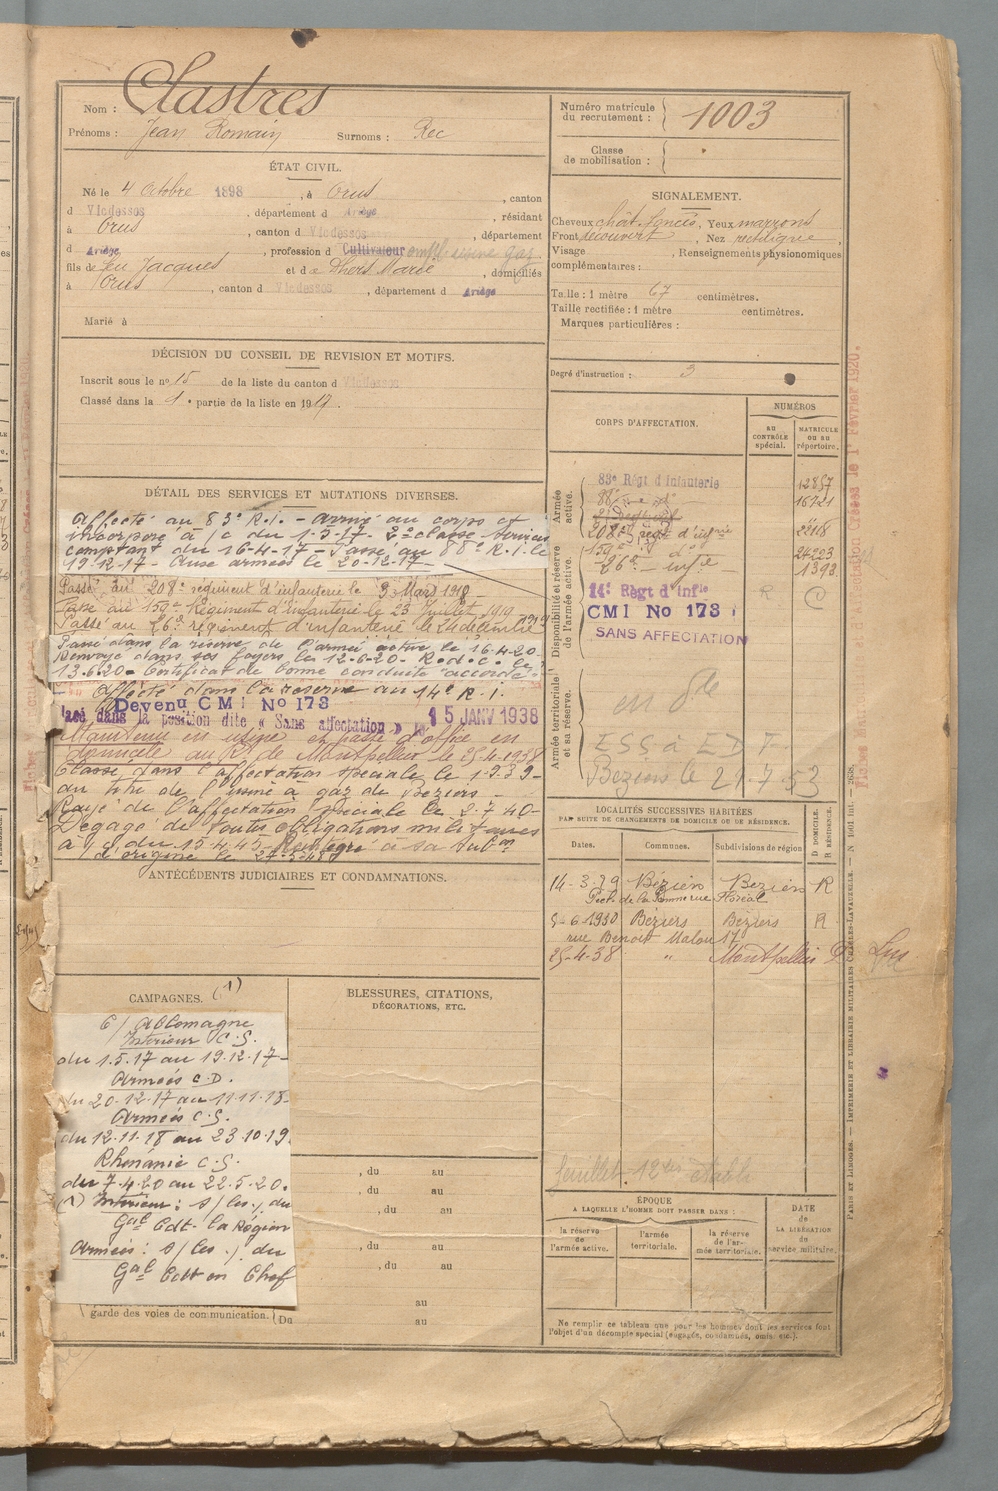 Nom : Clastres
Prénoms : Jean Romain Surnoms : Rec
ÉTAT CIVIL.
Né le 4 Octobre 1898, à Orus, canton
d Vicdessos, département d Ariège, résidant
à Orus, canton d Vicdessos, département
d Ariège, profession d Cultivateur empl. usine gaz
fils de feu Jacques et de Dhers Marie, domiciliés
à Orus, canton d Vicdessos, département d Ariège
Marié à
DÉCISION DU CONSEIL DE REVISION ET MOTIFS.
Inscrit sous le no 15 de la liste du canton d Vicdessos
Classé dans la 1e partie de la liste en 1917.
DÉTAIL DES SERVICES ET MUTATIONS DIVERSES.
Affecté au 83e R.I. - arrivé au corps et
incorporé à /c du 1-5-17- 2e classe services
comptant du 16-4-17 - Passé au 88e R.I. le
19-12-17 - Aux armées le 20-12-17 -
Passé au 208e régiment d'infanterie le 3 Mars 1918 -
Passé au 159e Régiment d'infanterie le 23 Juillet 1919
Passé au 26e régiment d'infanterie le 24 décembre 1919
Passé dans la réserve de l'armée active le 16-4-20
Renvoyé dans ses foyers le 12-6-20- R.d.c. le
13-6-20- Certificat de bonne conduite "accordé"
Affecté dans la réserve au 14e R.I.
Devenu CMI No 173
Placé dans la position dite « Sans affectation » le 15 JANV 1938
Maintenu en usine et passé d'office en
domicile au Rt de Montpellier le 25-4-1938
Classé dans l'affectation spéciale le 1-9-39-
au titre de l'usine à gaz de Béziers -
Rayé de l'affectation spéciale le 2-7-40-
Dégagé de toutes obligations militaires
à /c du 15-4-45- Réintégré à sa subon
d'origine le 27-5-48
ANTÉCÉDENTS JUDICIAIRES ET CONDAMNATIONS.
CAMPAGNES. (1)
C/ Allemagne
Intérieur C.S.
du 1.5.17 au 19.12.17-
Armées C.D.
du 20-12-17 au 11-11-18-
Armées C.S.
du 12.11.18 au 23.10.19
Rhénanie C.S.
du 7.4.20 au 22.5.20.
(1) Intérieur : s/ les ./. du
Gal Cdt la Région
Armées : s/ les ./. du
Gal Cdt en Chef
garde des voies de communication. (Du
BLESSURES, CITATIONS,
DÉCORATIONS, ETC.
, du au
, du au
, du au
, du au
, du au
au
au
Numéro matricule du recrutement : 1003
Classe de mobilisation :
SIGNALEMENT.
Cheveux chât. foncés, Yeux marrons
Front découvert, Nez rectiligne,
Visage , Renseignements physionomiques
complémentaires :
Taille : 1 mètre 67 centimètres.
Taille rectifiée : 1 mètre centimètres.
Marques particulières :
Degré d'instruction : 3
CORPS D'AFFECTATION.
NUMÉROS
AU CONTRÔLE spécial.
MATRICULE OU AU répertoire.
Armée active.
83e Régt d'Infanterie 12857
88e - do - 16721
208e régt d'infrie 22118
159e - do - 24203
26e - infie 1393
Disponibilité et réserve de l'armée active.
14e Régt d'Infie R C
CMI No 173
SANS AFFECTATION
Armée territoriale et sa réserve.
en dle
ESS à EDT
Béziers le 21.7.53
LOCALITÉS SUCCESSIVES HABITÉES
PAR SUITE DE CHANGEMENTS DE DOMICILE OU DE RÉSIDENCE.
Dates. Communes. Subdivisions de région D DOMICILE. R RÉSIDENCE.
14-3-29 Béziers Béziers R
rue Floréal
5-6-1930 Béziers Béziers R
rue Benoît Malon 17
25-4-38 " Montpellier D
feuillet 12 bis établi
ÉPOQUE
A LAQUELLE L'HOMME DOIT PASSER DANS :
la réserve de l'armée active.
l'armée territoriale.
la réserve de l'armée territoriale.
DATE de LA LIBÉRATION du service militaire.
Ne remplir ce tableau que pour les hommes dont les services font
l'objet d'un décompte spécial (engagés, condamnés, omis, etc.).
PARIS ET LIMOGES. — IMPRIMERIE ET LIBRAIRIE MILITAIRES CHARLES-LAVAUZELLE. — N 1901 int. — 2658.
Fiches Matricules et d'Affectation Créées le 1er Février 1920.